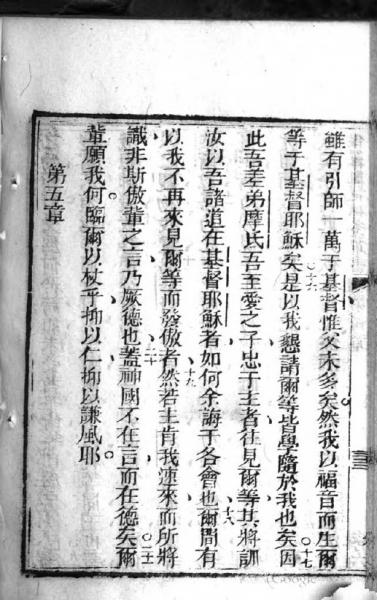 雖有引師一萬于基督惟父未多矣然我以福音而生爾
等于基督耶穌矣是以我懇請爾等皆學隨於我也矣因
此吾差弟摩氏吾至愛之子忠于主者往見爾等其將訓
汝以吾諸道在基督耶穌者如何余誨于各會也爾間有
以我不再來見爾等而發傲者然若主肯我速來而所將
識非斯傲輩之言乃厥德也蓋神國不在言而在德矣爾
輩願我何臨爾以杖乎抑以仁抑以謙風耶
第五章
十六
十七
十八
十九
二十
二一
Google